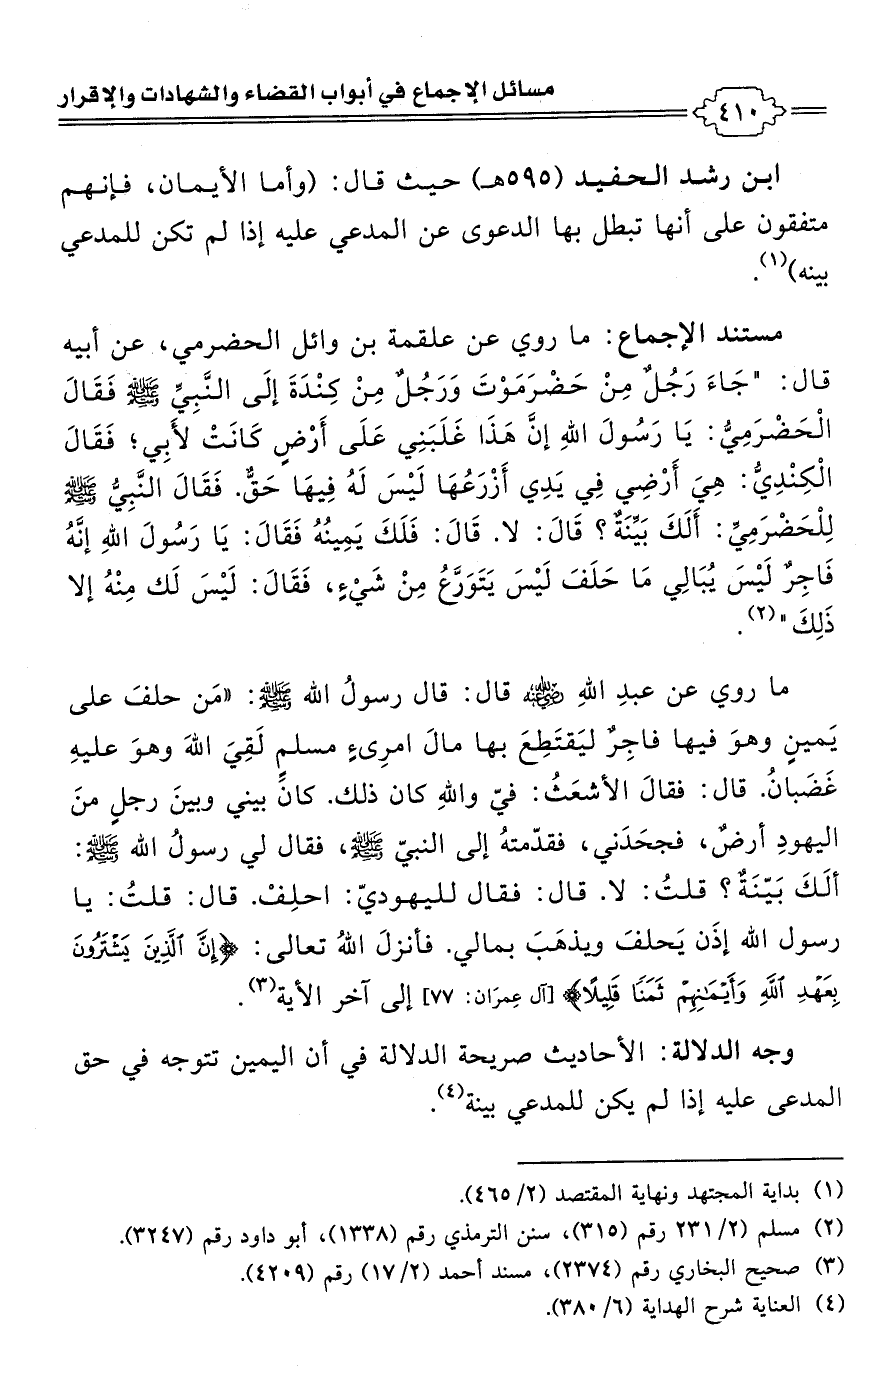 ٤١٠
مسائل الإجماع في أبواب القضاء والشهادات والإقرار
ابن رشد الحفيد (٥٩٥هـ) حيث قال: (وأما الأيمان، فإنهم
متفقون على أنها تبطل بها الدعوى عن المدعي عليه إذا لم تكن للمدعي
بينه)(١).
مستند الإجماع: ما روي عن علقمة بن وائل الحضرمي، عن أبيه
قال: "جَاءَ رَجُلٌ مِنْ حَضْرَمَوْتَ وَرَجُلٌ مِنْ كِنْدَةَ إلَى النَّبِيِّ ﷺ فَقَالَ
الْحَضْرَمِيُّ: يَا رَسُولَ اللهِ إنَّ هَذَا غَلَبَنِي عَلَى أَرْضٍ كَانَتْ لأَبِي؛ فَقَالَ
الْكِنْدِيُّ: هِيَ أَرْضِي فِي يَدِي أَزْرَعُهَا لَيْسَ لَهُ فِيهَا حَقٌّ. فَقَالَ النَّبِيُّ ﷺ
لِلْحَضْرَمِيِّ: أَلَكَ بَيِّنَةٌ؟ قَالَ: لا. قَالَ: فَلَكَ يَمِينُهُ فَقَالَ: يَا رَسُولَ اللهِ إنَّهُ
فَاجِرٌ لَيْسَ يُبَالِي مَا حَلَفَ لَيْسَ يَتَوَرَّعُ مِنْ شَيْءٍ، فَقَالَ: لَيْسَ لَك مِنْهُ إلا
ذَلِكَ"(٢).
ما روي عن عبدِ اللهِ رضي الله عنه قال: قال رسولُ الله ﷺ: «مَن حلفَ على
يَمينٍ وهوَ فيها فاجِرٌ ليَقتَطِعَ بها مالَ امرِىءٍ مسلمٍ لَقِيَ اللهَ وهوَ عليهِ
غَضَبانُ. قال: فقالَ الأشعَثُ: فيّ واللهِ كان ذلك. كانَ بيني وبينَ رجلٍ منَ
اليهودِ أرضٌ، فجحَدَني، فقدّمتهُ إلى النبيّ ﷺ، فقال لي رسولُ الله ﷺ:
ألَكَ بَيّنَةٌ؟ قلتُ: لا. قال: فقال لليهوديّ: احلِفْ. قال: قلتُ: يا
رسول الله إذَن يَحلفَ ويذهَبَ بمالي. فأنزلَ اللهُ تعالى: ﴿إِنَّ ٱلَّذِينَ يَشْتَرُونَ
بِعَهْدِ ٱللَّهِ وَأَيْمَٰنِهِمْ ثَمَنًا قَلِيلًا﴾ [آل عِمرَان: ٧٧] إلى آخر الأية(٣).
وجه الدلالة: الأحاديث صريحة الدلالة في أن اليمين تتوجه في حق
المدعى عليه إذا لم يكن للمدعي بينة(٤).
(١) بداية المجتهد ونهاية المقتصد (٢/ ٤٦٥).
(٢) مسلم (٢/ ٢٣١ رقم (٣١٥)، سنن الترمذي رقم (١٣٣٨)، أبو داود رقم (٣٢٤٧).
(٣) صحيح البخاري رقم (٢٣٧٤)، مسند أحمد (٢/ ١٧) رقم (٤٢٠٩).
(٤) العناية شرح الهداية (٦/ ٣٨٠).